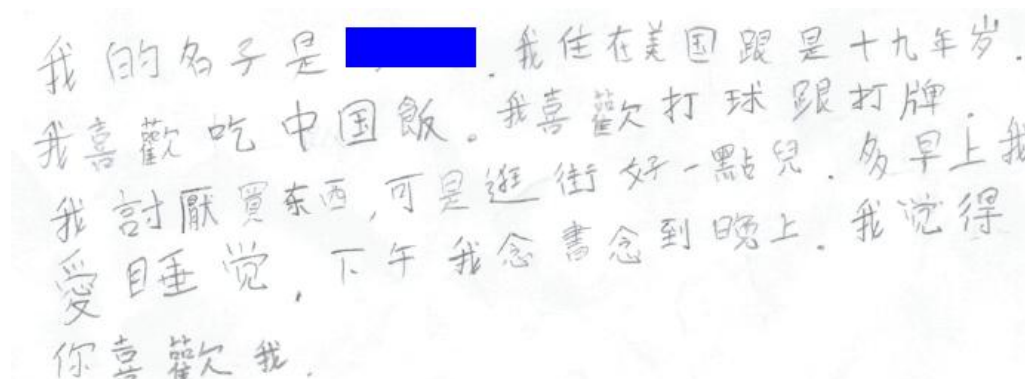 我的名子是 . 我住在美国跟是十九年岁.
我喜歡吃中国飯。我喜歡打球跟打牌.
我討厭買东西,可是逛街好一點兒. 多早上我
愛睡觉. 下午我念書念到晚上. 我觉得
你喜歡我.